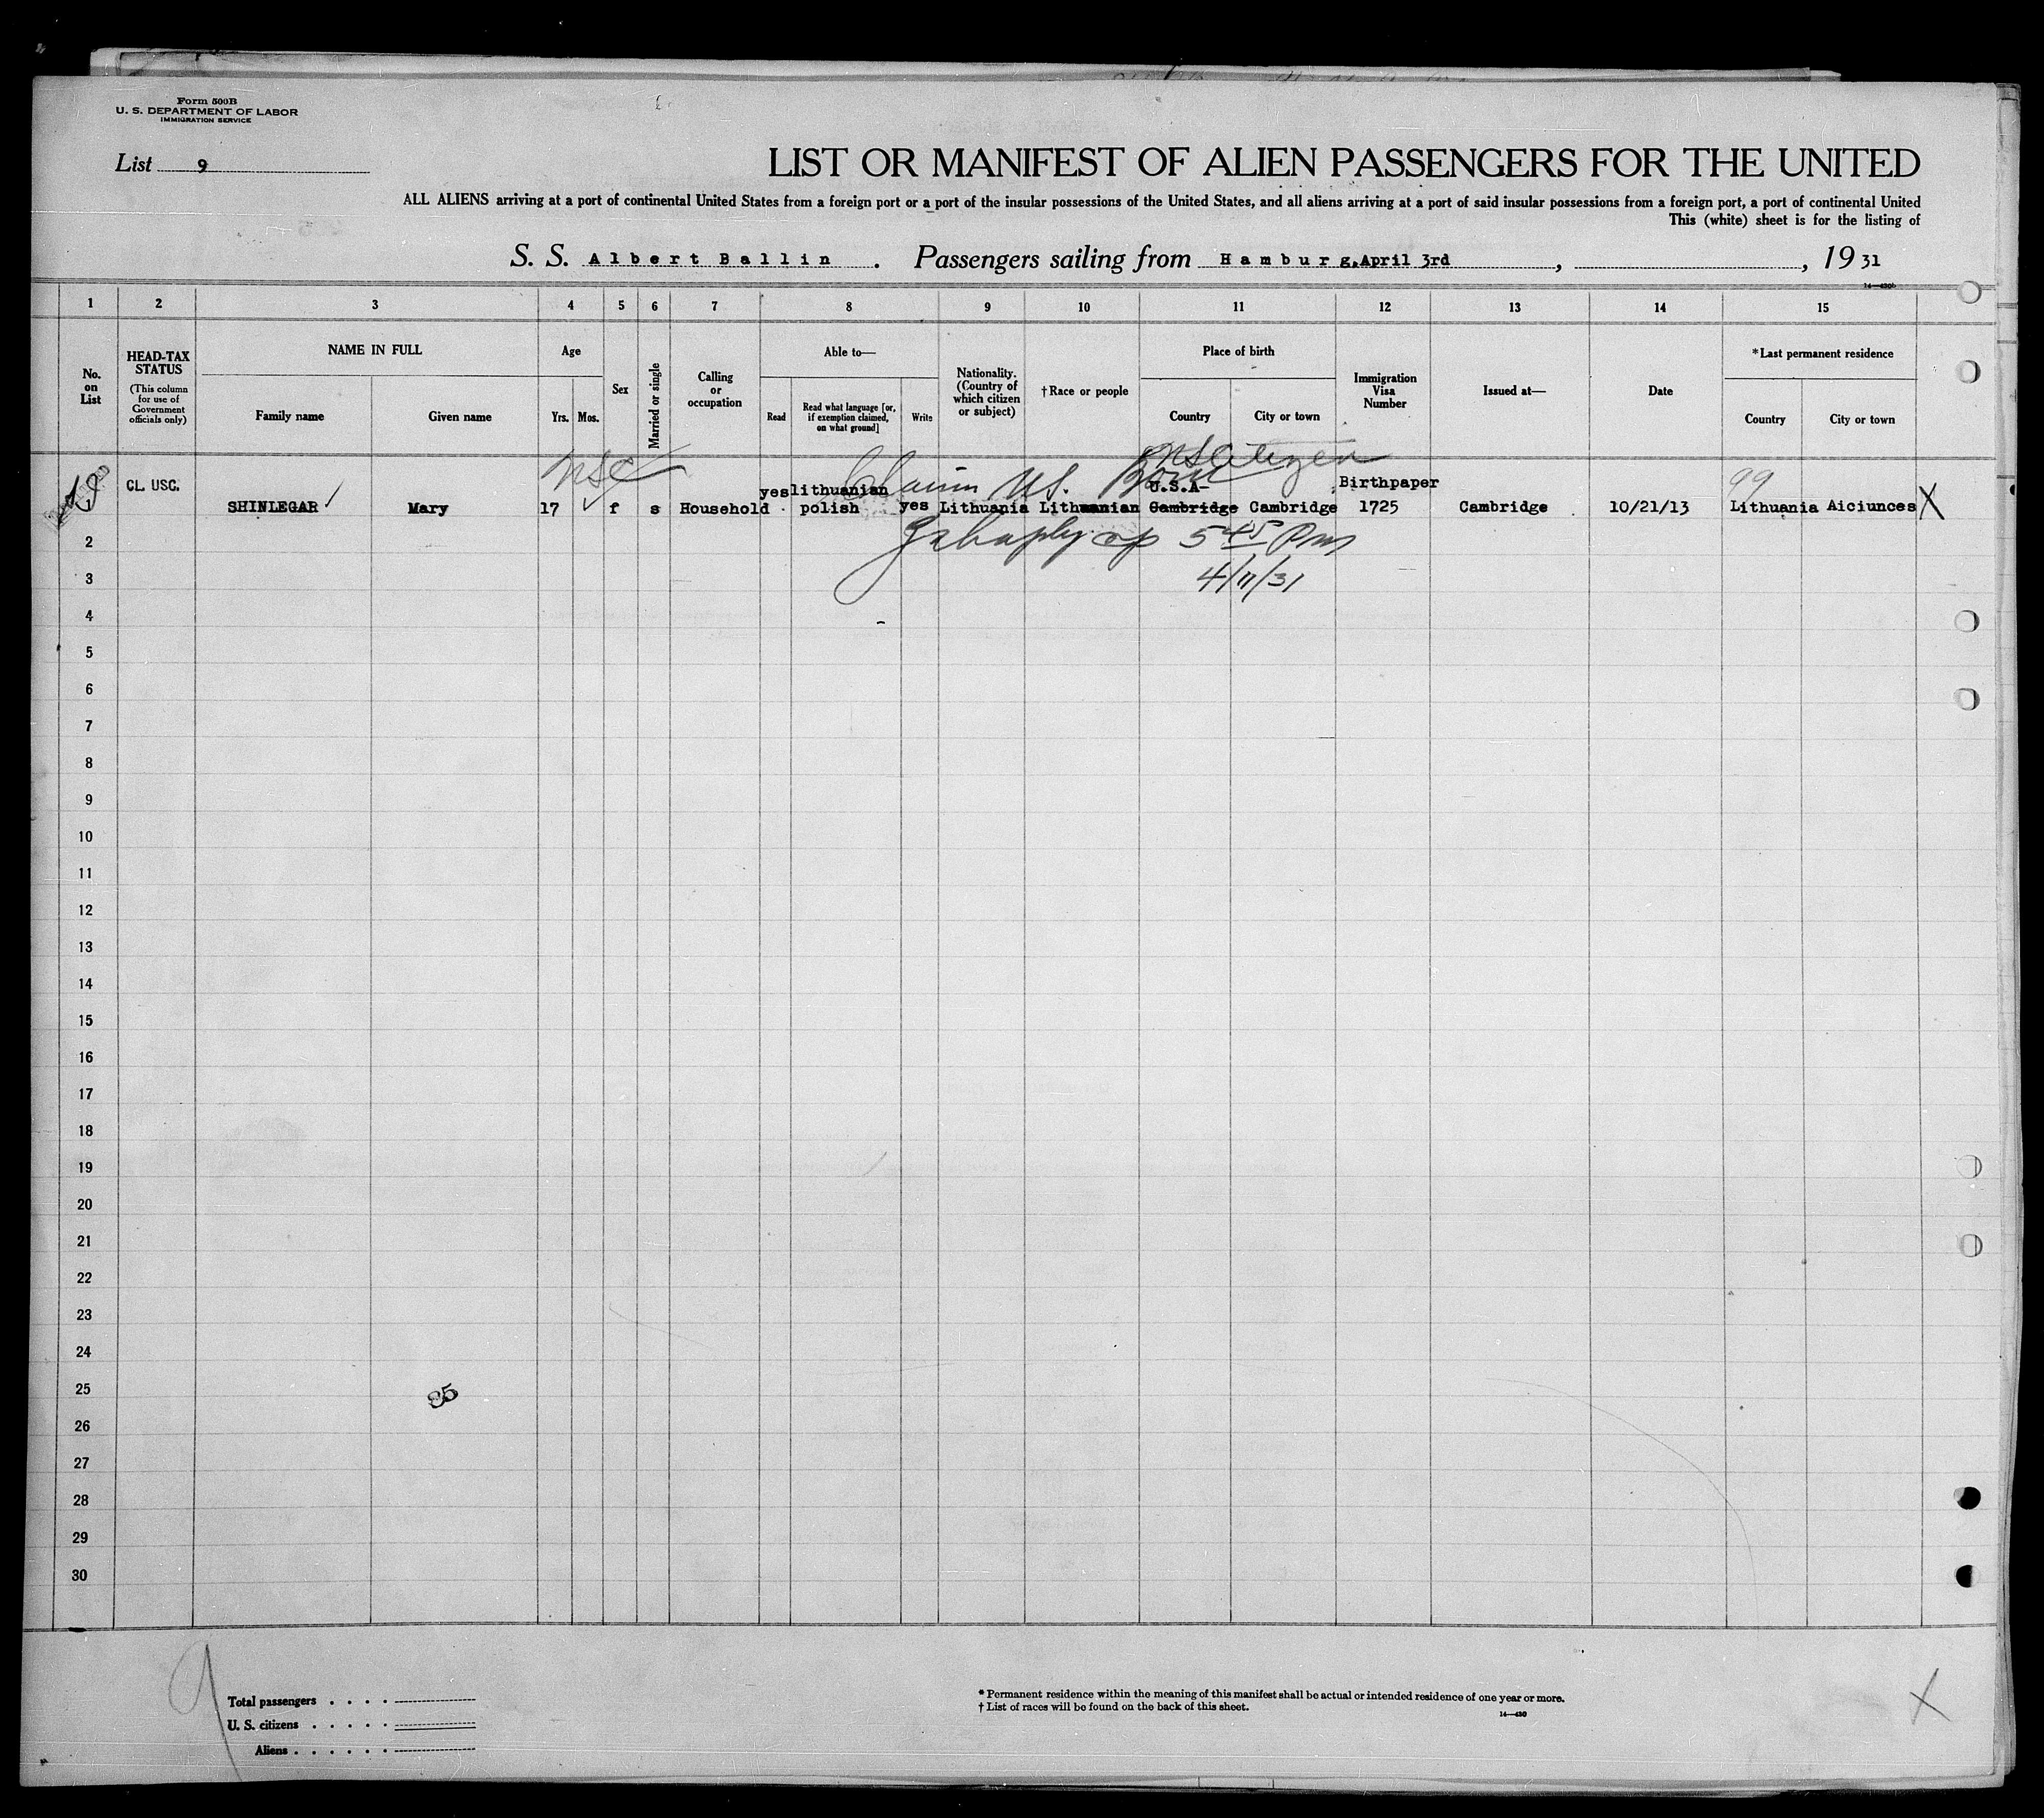 Form 500B
U. S. DEPARTMENT OF LABOR
IMMIGRATION SERVICE
List 9
LIST OR MANIFEST OF ALIEN PASSENGERS FOR THE UNITED
ALL ALIENS arriving at a port of continental United States from a foreign port or a port of the insular possessions of the United States, and all aliens arriving at a port of said insular possessions from a foreign port, a port of continental United
This (white) sheet is for the listing of
S. S. Albert Ballin . Passengers sailing from Hamburg, April 3rd , , 19 31
14—430b
1 2 3 4 5 6 7 8 9 10 11 12 13 14 15
No. on List
HEAD-TAX STATUS
(This column for use of Government officials only)
NAME IN FULL
Family name
Given name
Age
Yrs. Mos.
Sex
Married or single
Calling or occupation
Able to—
Read
Read what language [or, if exemption claimed, on what ground]
Write
Nationality. (Country of which citizen or subject)
† Race or people
Place of birth
Country
City or town
Immigration Visa Number
Issued at—
Date
*Last permanent residence
Country
City or town
USC
Claim US. Born
US Citizen
99
CL. USC. yes lithuanian U.S.A. Birthpaper
1 SHINLEGAR Mary 17 f s Household polish yes Lithuania Lithuanian Cambridge Cambridge 1725 Cambridge 10/21/13 Lithuania Aiciunces X
2
op 5 45 Pm
3
4/11/31
4
5
6
7
8
9
10
11
12
13
14
15
16
17
18
19
20
21
22
23
24
25
35
26
27
28
29
30
9
Total passengers . . . .
U. S. citizens . . . . .
Aliens . . . . . .
* Permanent residence within the meaning of this manifest shall be actual or intended residence of one year or more.
† List of races will be found on the back of this sheet.
14—430
X